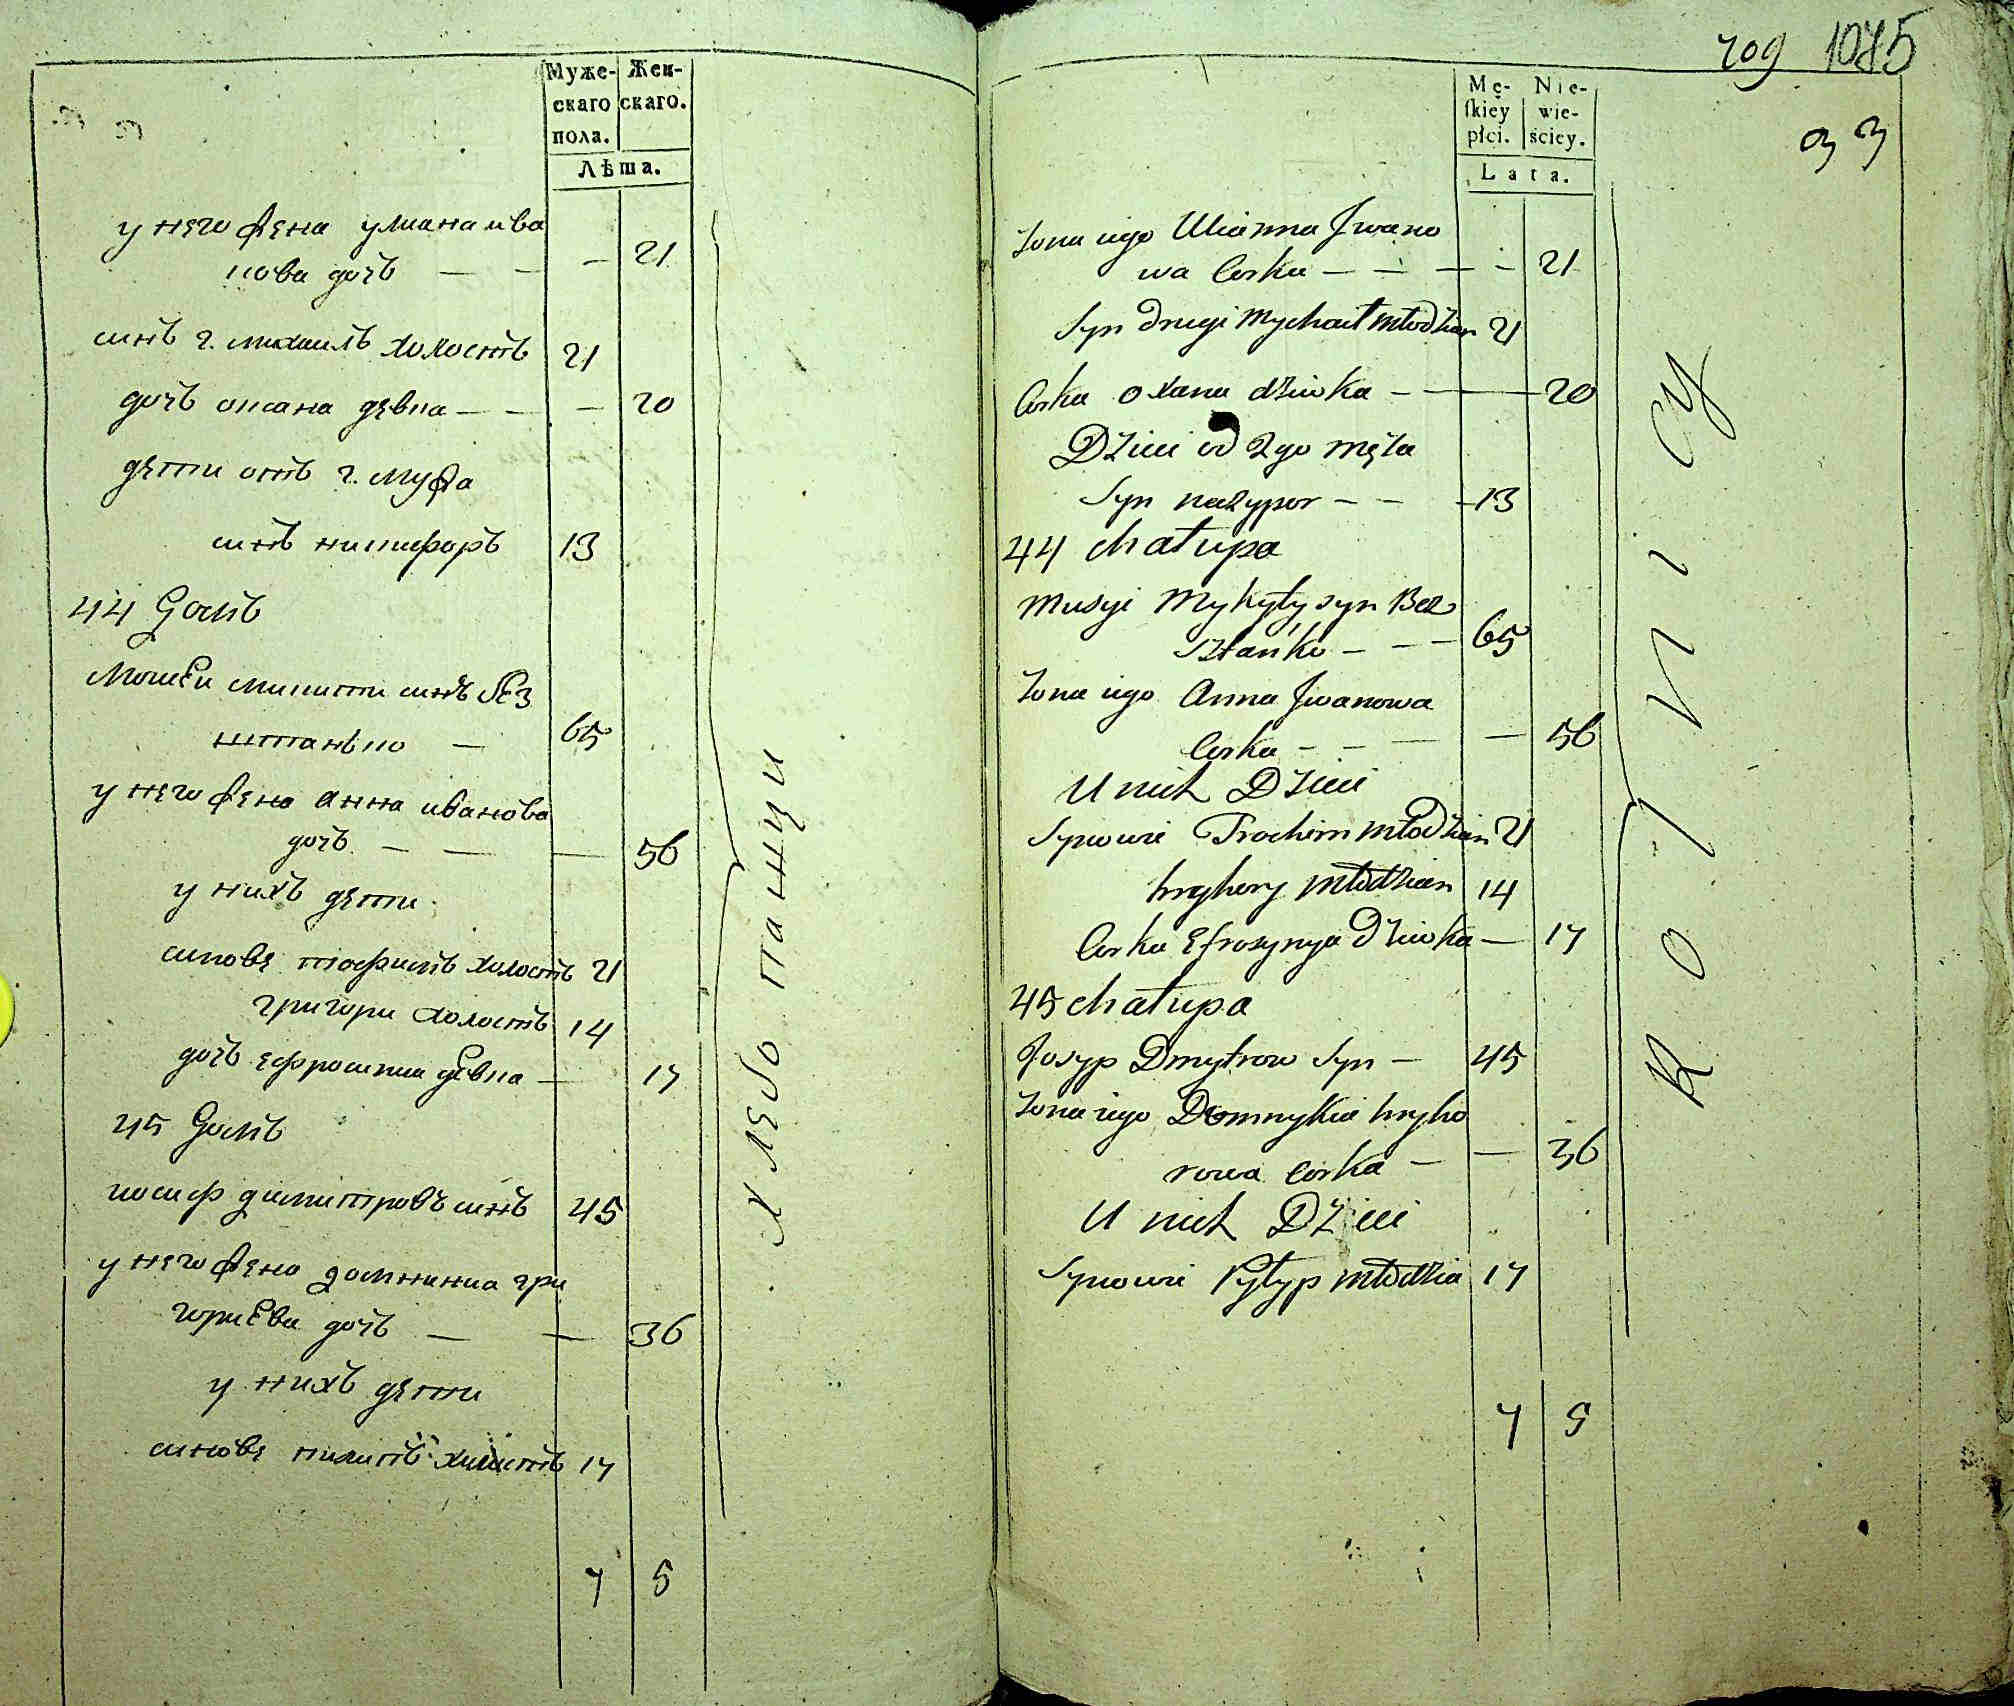 Муже- Жен-
скаго скаго.
пола.
Лѣта.
у него жена улиана ива
нова дочь — — — 21
синъ 2. михаилъ холостъ 21
дочь оксана девка — — — 20
дети отъ 2. мужа
синъ никифоръ 13
44 Домъ
Мосей микити синъ без
штанько — 65
у него жена анна иванова
дочь — — — 56
у нихъ дети
синове трофимъ холостъ 21
григори холостъ 14
дочь ефросиния девка — 17
45 Домъ
иосиф димитровъ синъ 45
у него жена домникиа гри
гориева дочь — — 36
у нихъ дети
синове пилипъ холостъ 17
7 5
хлебопанци
год 1075
33
Mę- Nie-
skiey wie-
płci. ściey.
Lata.
Zona iego Ulianna Jwano
wa Corka — — — — 21
Syn drugi Mychaił młodzian 21
Corka oxana dziwka — — 20
Dzieci od 2go męża
Syn nazypor — — — 13
44 chałupa
Musyi Mykyty syn Bez
sztańko — — — 65
Zona iego Anna Jwanowa
Corka — — — — 56
U nich Dzieci
Synowie Trochim młodzian 21
hryhory młodzian 14
Corka Efrosynya Dziwka — 17
45 chałupa
Josyp Dmytrow Syn — 45
Zona iego Domnykia hryho
rowa Corka — — 36
U nich Dzieci
Synowie Pyłyp młodzia 17
7 5
Rolnicy